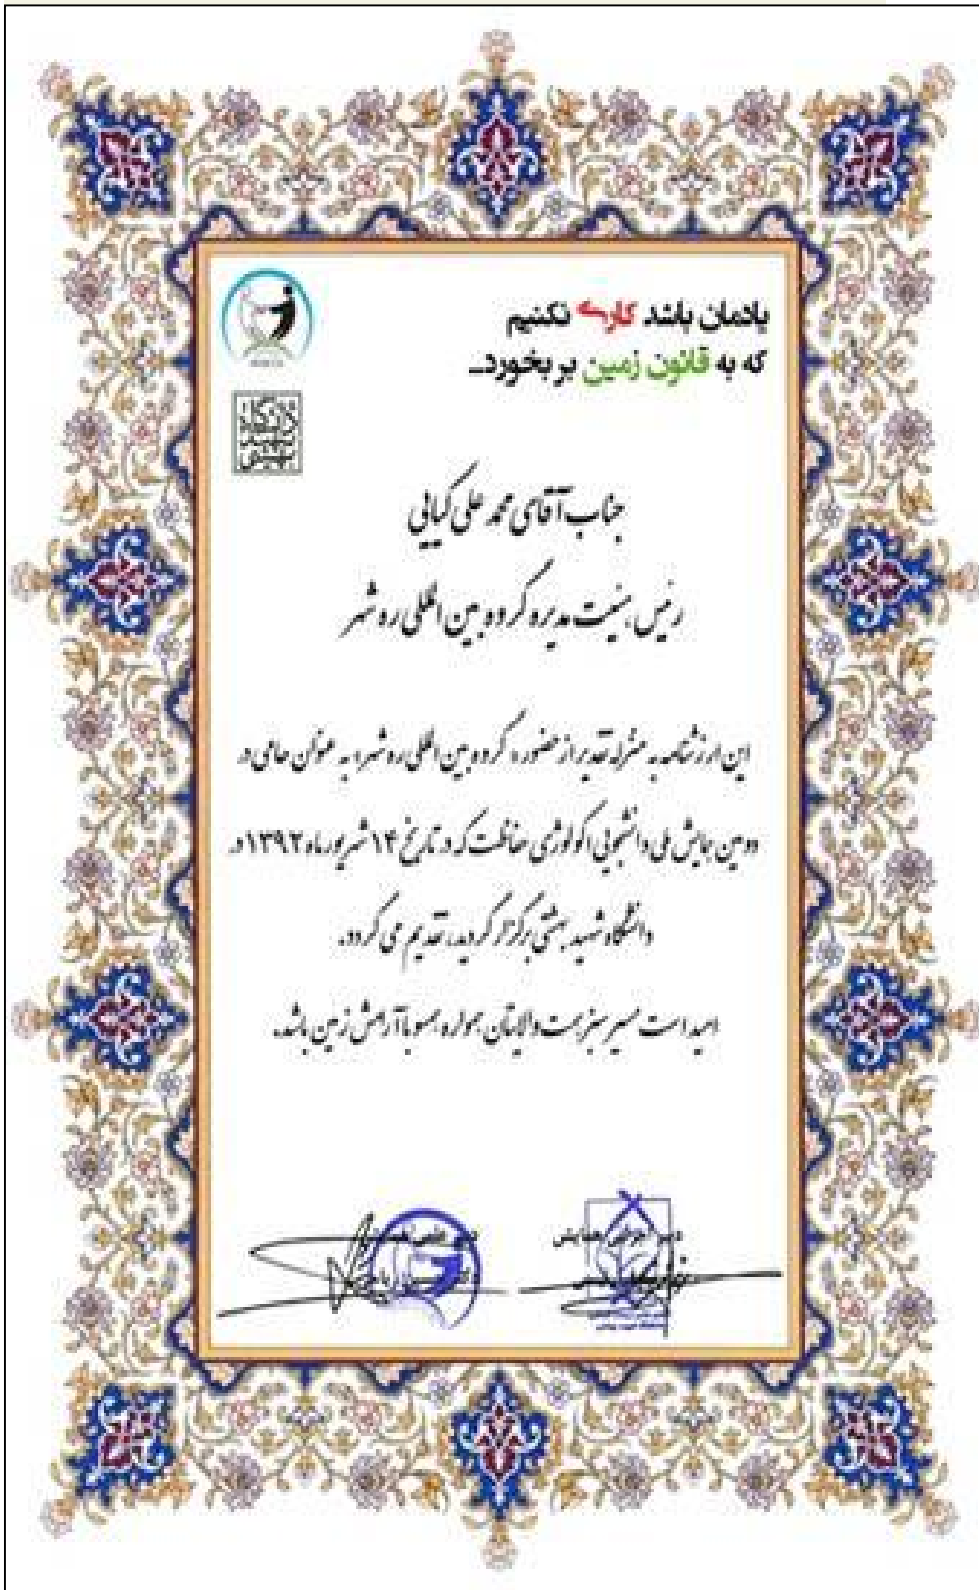 یادمان باشد کاری نکنیم
که به قانون زمین بر بخورد...
دانشگاه
شهید
بهشتی
جناب آقای محمد علی کیانی
رئیس هیئت مدیره گروه بین المللی ره شهر
این ارزشنامه به منزله تقدیر از حضور « گروه بین المللی ره شهر » به عنوان حامی در
دومین همایش ملی دانشجویی اکولوژی حفاظت که در تاریخ ۱۴ شهریور ماه ۱۳۹۲ در
دانشگاه شهید بهشتی برگزار گردید، تقدیم می گردد.
امید است مسیر سبز همت والایتان همواره همسو با آرامش زمین باشد.
دبیر اجرایی همایش
دبیر علمی